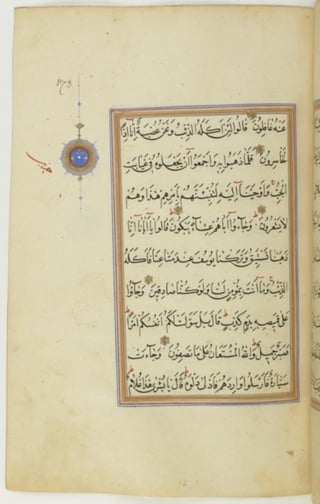 عَنْهُ غَافِلُونَ قَالُوا لَئِنْ أَكَلَهُ الذِّئْبُ وَنَحْنُ عُصْبَةٌ إِنَّا إِذًا
لَخَاسِرُونَ فَلَمَّا ذَهَبُوا بِهِ وَأَجْمَعُوا أَنْ يَجْعَلُوهُ فِي غَيَابَتِ
الْجُبِّ وَأَوْحَيْنَا إِلَيْهِ لَتُنَبِّئَنَّهُمْ بِأَمْرِهِمْ هَذَا وَهُمْ
لَا يَشْعُرُونَ وَجَاءُوا أَبَاهُمْ عِشَاءً يَبْكُونَ قَالُوا يَا أَبَانَا إِنَّا
ذَهَبْنَا نَسْتَبِقُ وَتَرَكْنَا يُوسُفَ عِنْدَ مَتَاعِنَا فَأَكَلَهُ
الذِّئْبُ وَمَا أَنْتَ بِمُؤْمِنٍ لَنَا وَلَوْ كُنَّا صَادِقِينَ وَجَاءُوا
عَلَى قَمِيصِهِ بِدَمٍ كَذِبٍ قَالَ بَلْ سَوَّلَتْ لَكُمْ أَنْفُسُكُمْ أَمْرًا
فَصَبْرٌ جَمِيلٌ وَاللَّهُ الْمُسْتَعَانُ عَلَى مَا تَصِفُونَ وَجَاءَتْ
سَيَّارَةٌ فَأَرْسَلُوا وَارِدَهُمْ فَأَدْلَى دَلْوَهُ قَالَ يَا بُشْرَى هَذَا غُلَامٌ